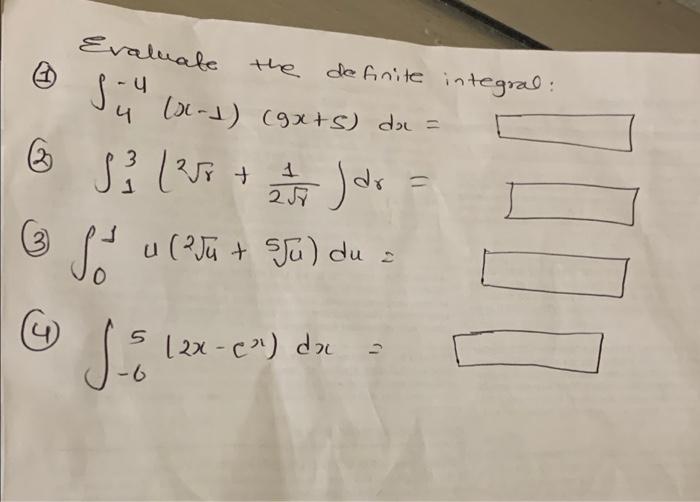 Evaluate the definite integral:
① ∫₄⁻⁴ (x-1) (9x+5) dx =
② ∫₁³ (²√r + 1/(2√r)) dr =
③ ∫₀¹ u (²√u + ⁵√u) du =
④ ∫₋₆⁵ (2x - eˣ) dx =